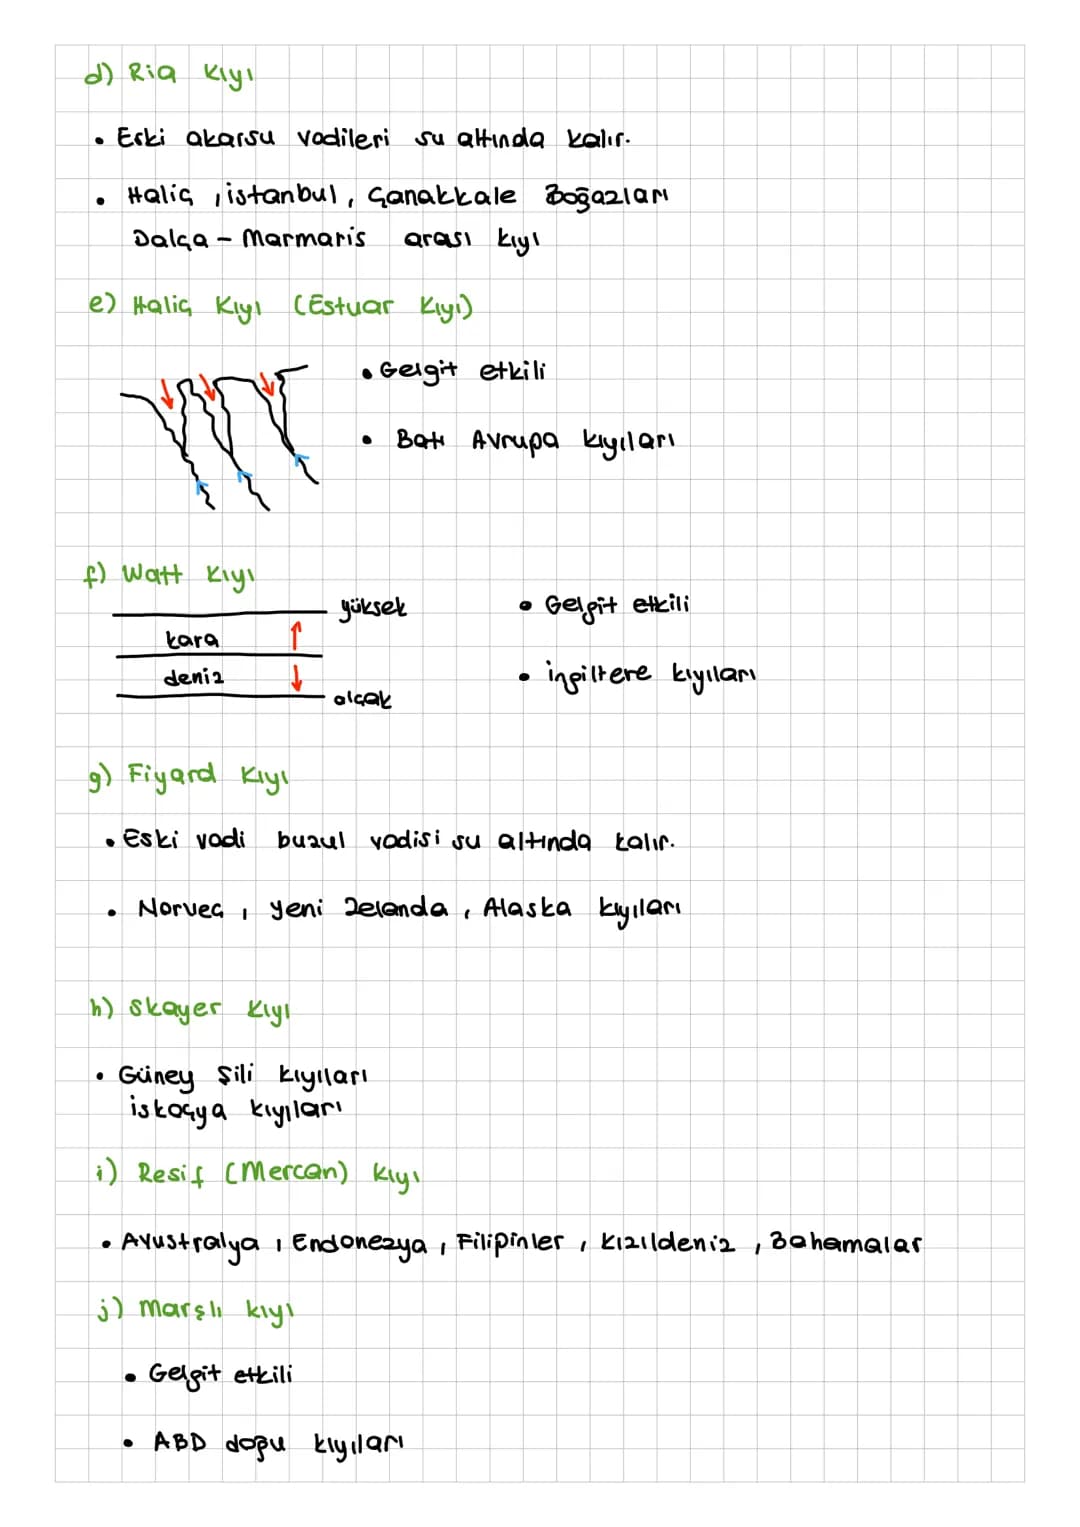 d) Ria Kıyı
• Eski akarsu vadileri su altında kalır.
• Haliç, istanbul, Çanakkale Boğazları
Dalça - Marmaris arası kıyı
e) Haliç Kıyı (Estuar Kıyı)
• Gelgit etkili
• Batı Avrupa kıyıları
f) Watt Kıyı
yüksek
• Gelgit etkili
kara
deniz
• ingiltere kıyıları
alçak
g) Fiyard Kıyı
• Eski vadi buzul vadisi su altında kalır.
• Norveç, yeni Zelanda, Alaska kıyıları
h) Skayer Kıyı
• Güney Şili kıyıları
iskoçya kıyıları
i) Resif (Mercan) kıyı
• Avustralya, Endonezya, Filipinler, kızıldeniz, Bahamalar
j) Marşlı kıyı
• Gelgit etkili
• ABD doğu kıyıları